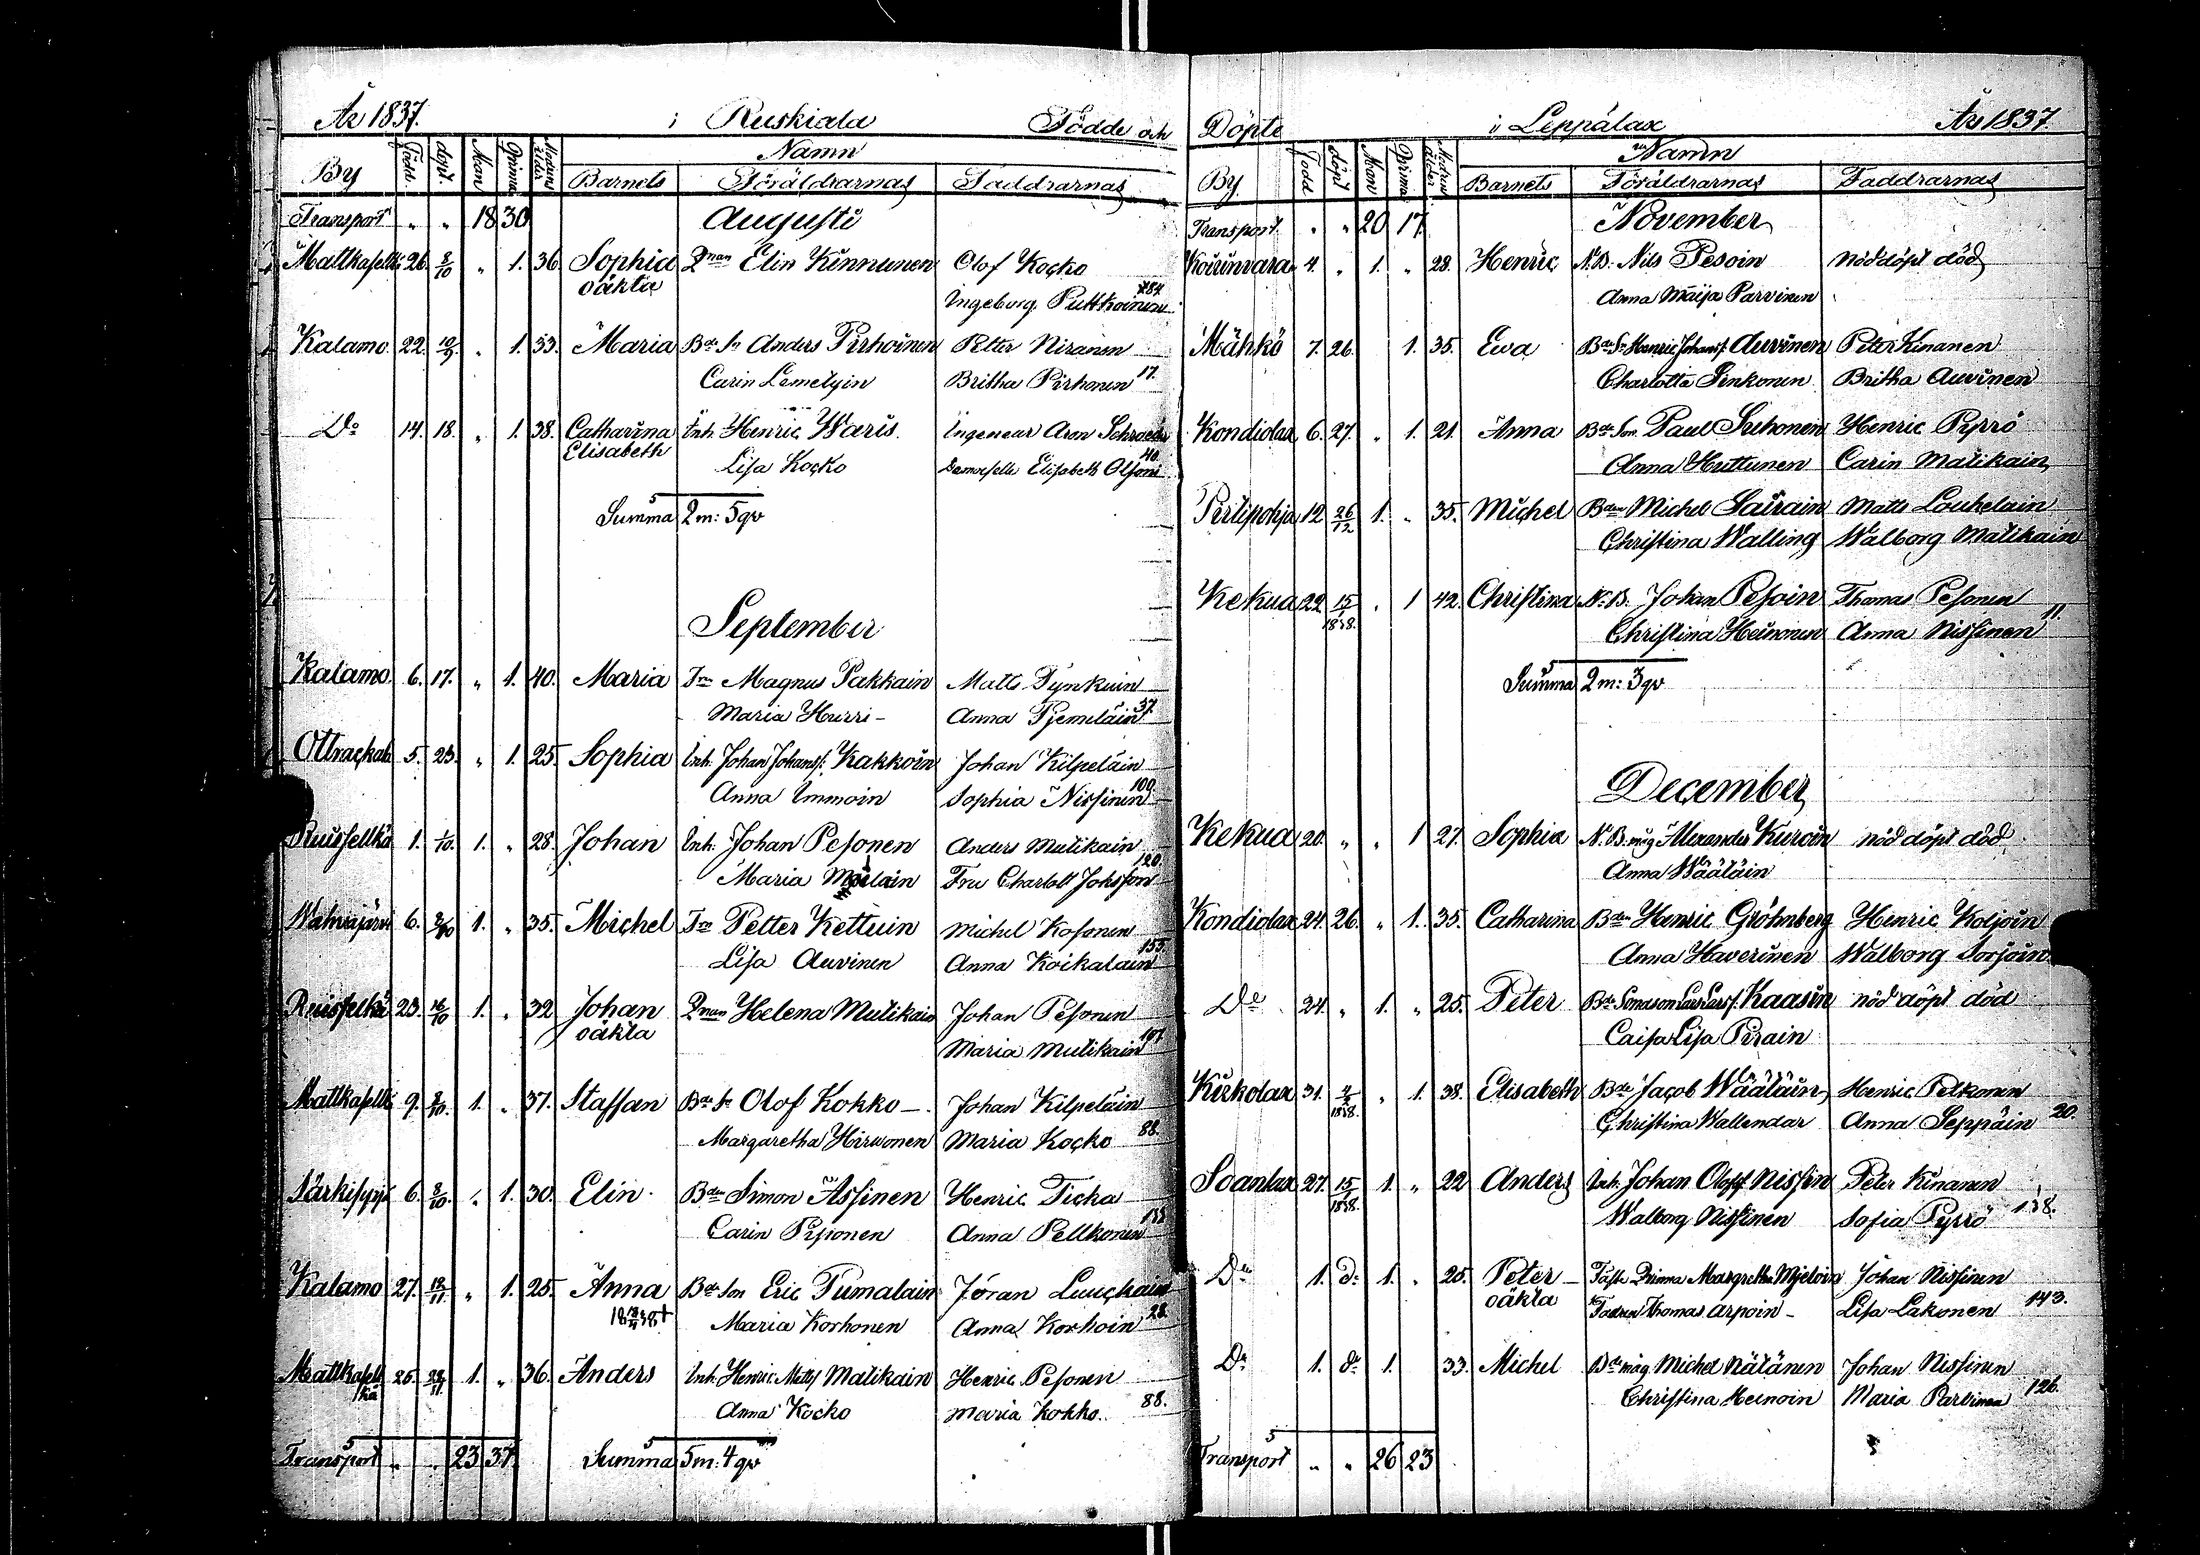 År 1837. i Ruskiala Födde och
By Född. döpt. Man Qvinna Modrens ålder Namn
Barnets Föräldrarnas Faddrarnas
Transport " " 18 30 Augusti
Mattkaselkä 26. 8/10 " 1. 36. Sophia Qnan Elin Kinnunen Olof Kocko
oäkta Ingeborg Puttkoinen 184.
Kalamo. 22. 10/9. " 1. 33. Maria Bde Sn Anders Pirhoinen Petter Niranen
Carin Lemetyin Britha Pirhonen 17.
Do 14. 18. " 1. 38. Catharina Inh. Henric Waris. Ingeneur Aron Schroeder
Elisabeth Lisa Kocko Demoiselle Elisabeth Olsoni 40.
Summa 2 m: 5 qv
September
Kalamo 6. 17. " 1. 40. Maria Tr Magnus Pakkain Matts Tynkuin
Maria Hurri - Anna Tjemeläin 37.
Ottrackala 5. 23. " 1. 25. Sophia Inh. Johan Johanss. Kakkoin Johan Kilpeläin
Anna Immoin Sophia Nissinen 100.
Ruisselkä 1. 1/10. 1. " 28. Johan Inh. Johan Pesonen Anders Mutikain
Maria Fru Charlott Joksson 120.
Wahvajärvi 6. 8/10 1. " 35. Michel Tr Petter Kettuin Michel Kosonen
Lisa Auvinen Anna Koikalain 155.
Ruisselkä 23. 16/10 1. " 32 Johan Qnan Helena Mutikain Johan Pesonen
oäkta Maria Mutikain 107.
Mattkaselkä 9. 8/10. 1. " 37. Staffan Bde Sn Olof Kokko - Johan Kilpeläin
Margaretha Hirwonen Maria Kocko 88.
Särkisyrjä 6. 8/10. " 1. 30. Elin. Bde Simon Assinen Henric Ticka
Carin Pesonen Anna Pellkonen 133
Kalamo 27. 12/11. " 1. 25. Anna Bde Son Eric Tumalain Jöran Luuckain
Maria Korhonen Anna Korhoin 28.
Mattkasel 25. 22/11. 1. " 36. Anders Inh. Henric Matts Matikain Henric Pesonen
kä Anna Kocko Maria Kokko. 88.
Transport " " 23 37. Summa 5 m: 4 qv
Döpte i Leppälax År 1837.
By. Född döpt Mans Qvinna Modrens ålder Namn
Barnets Föräldrarnas Faddrarnas
Transport. " " 20 17. November
4. " 1. " 28. Henric N.B. Nils Pesoin nöd döpt död
Anna Maija Parvinen
Mähkö 7. 26. 1. 35. Ewa Bde Sn Henric Johans. Auvinen Peter Kinanen
Charlotta Sinkonen Britha Auvinen
Kondiolax 6. 27. " 1. 21. Anna Bde Son. Paul Suhonen Henric Pyrrö
Anna Huttunen Carin Matikain
Pirttipohja 12. 26/12. 1. " 35. Michel Bden Michel Sairain Matts Loukelain
Christina Walling Walborg Matikain
Kekua 22. 15/1 1838. " 1 42. Christina N.B. Johan Pesoin Thomas Pesonen
Christina Heinonen Anna Nissinen 11.
Summa 2 m: 3 qv
December
Kekua 20. " " 1 27. Sophia N.B. måg Alexander Kuroin nöd döpt död
Anna Wäätäin
Kondiolax 24. 26. " 1. 35. Catharina Bden Henric Gröhnberg Henric Koljoin
Anna Haverinen Walborg Sorjoin.
Do 24. " 1. " 25. Peter Bde Sonason Lars Larss. Kaasin nöd döpt död
Caisa Lisa Pirain
Kirkolax 31. 4/2 1838. " 1. 38. Elisabeth Bde Jacob Wäätäin Henric Pelkonen
Christina Wallendar Anna Seppäin 20.
Soanlax 27. 15/1 1838. 1. " 22 Anders Inh. Johan Oloff Nissin Peter Kinanen
Walborg Nissinen Sofia Pyrrö 138.
Do 1. do 1. " 25. Peter - Margretha Mjeloin Johan Nissinen
oäkta Fadren Thomas Arpoin - Lisa Lakonen 143.
Do 1. do 1. 33. Michel Bde måg Michel Nätänen Johan Nissinen
Christina Heinoin Maria Parvinen 126.
Transport " " 26 23